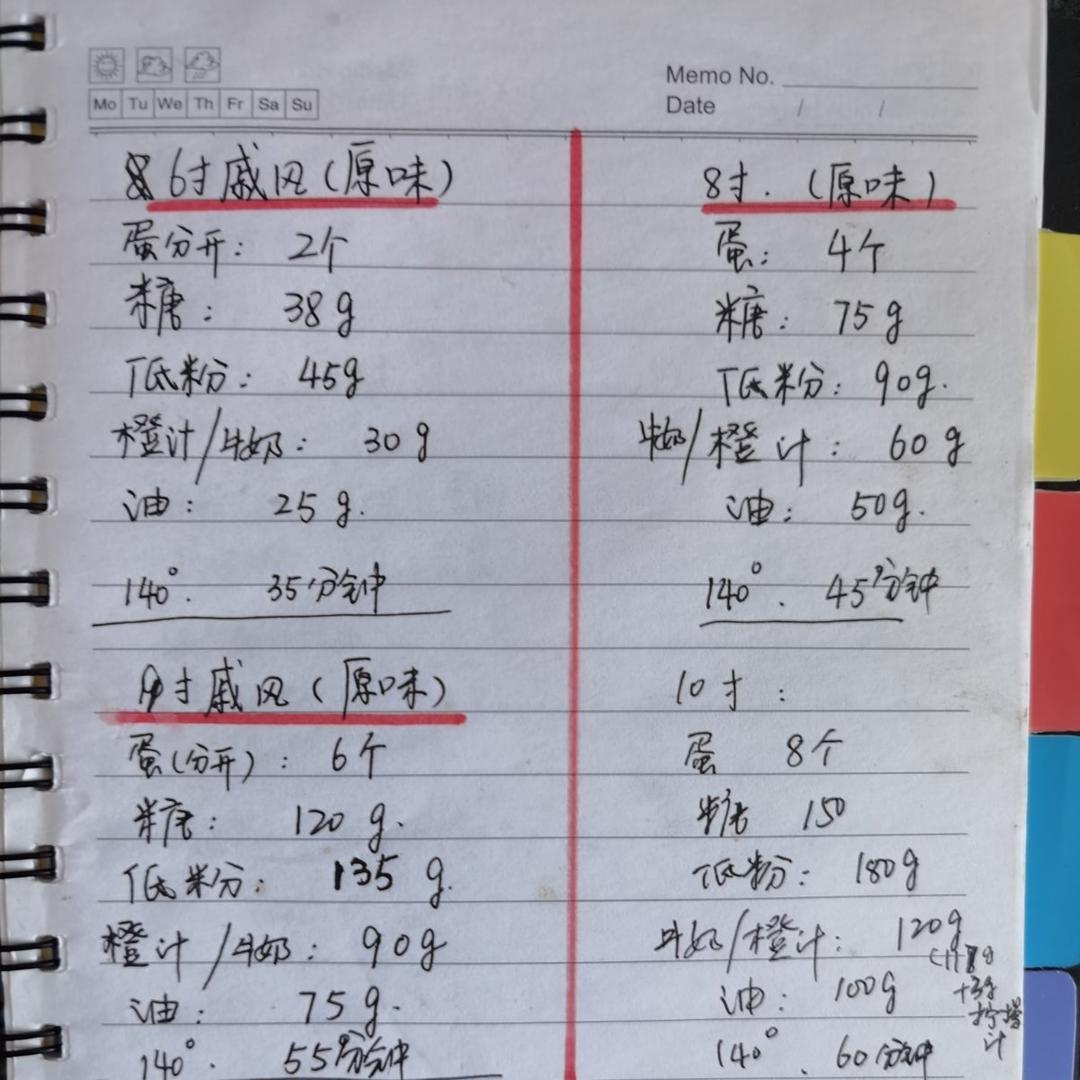 Mo Tu We Th Fr Sa Su
Memo No.
Date / /
6寸戚风(原味)
蛋分开: 2个
糖: 38g
低粉: 45g
橙汁/牛奶: 30g
油: 25g.
140°. 35分钟
8寸. (原味)
蛋: 4个
糖: 75g
低粉: 90g.
牛奶/橙汁: 60g
油: 50g.
140°. 45分钟
寸戚风(原味)
蛋(分开): 6个
糖: 120g.
低粉: 135g.
橙汁/牛奶: 90g
油: 75g.
140°. 55分钟
10寸:
蛋 8个
糖 150
低粉: 180g
牛奶/橙汁: 120g
油: 100g
140°. 60分钟